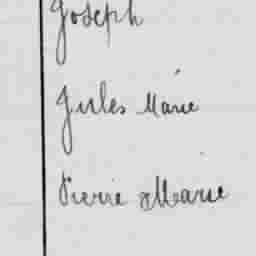 Joseph
Jules Marie
Pierre Marie